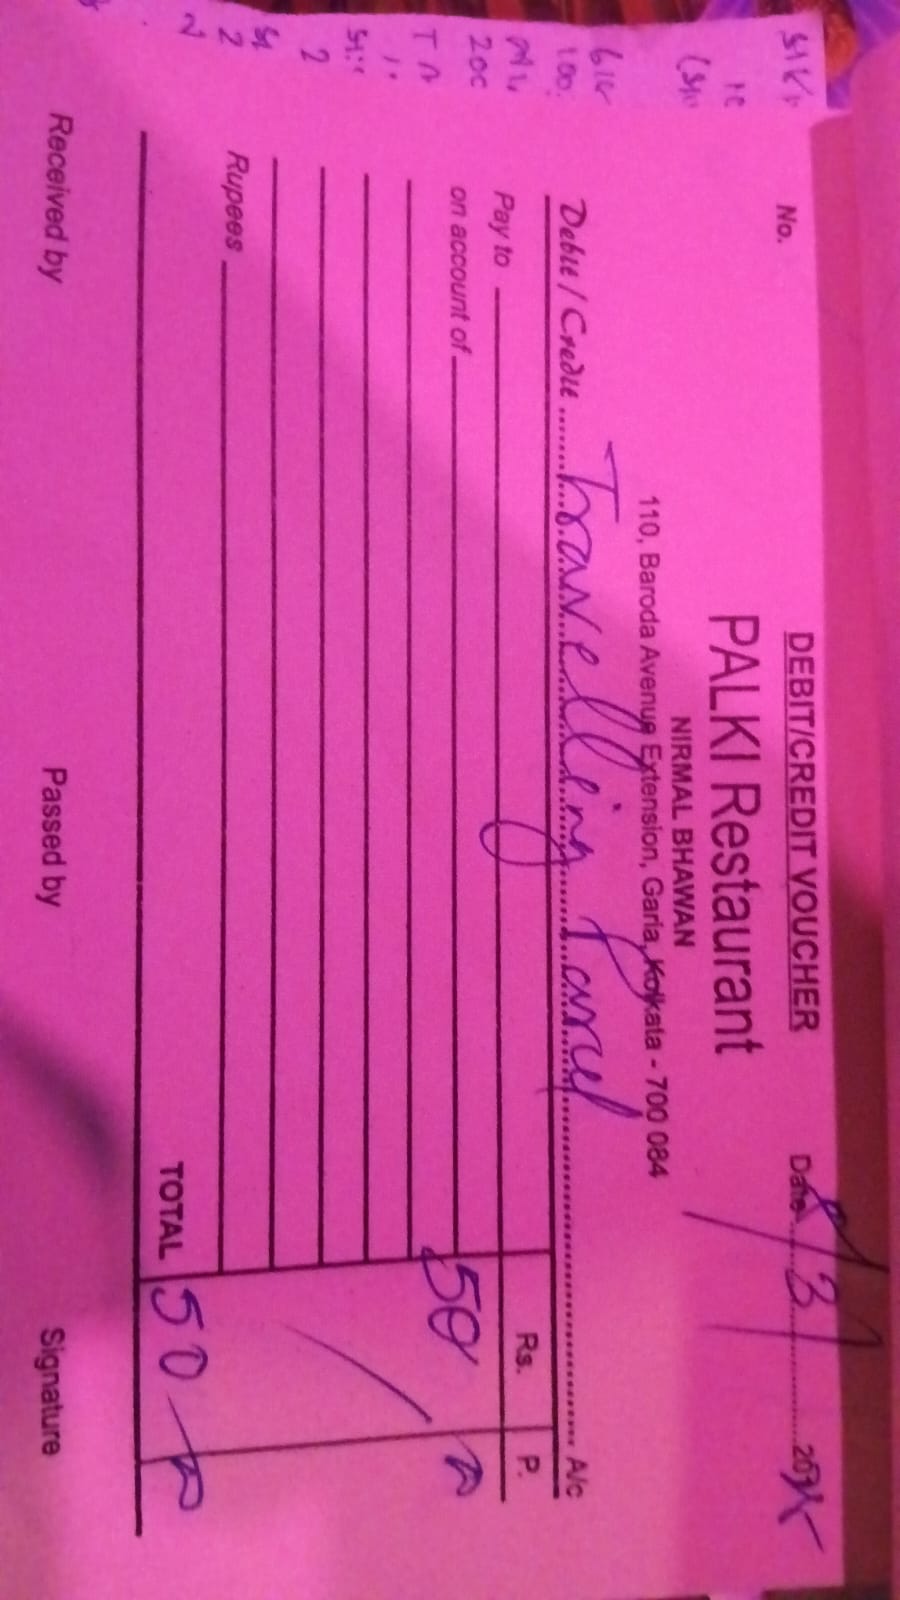 DEBIT/CREDIT VOUCHER
PALKI Restaurant
NIRMAL BHAWAN
110, Baroda Avenue Extension, Garia, Kolkata - 700 084
No.
Date 8/3/ 20
Debit / Credit Travelling A/c
Pay to Rs. P.
on account of
50
Rupees
TOTAL 50
Received by Passed by Signature